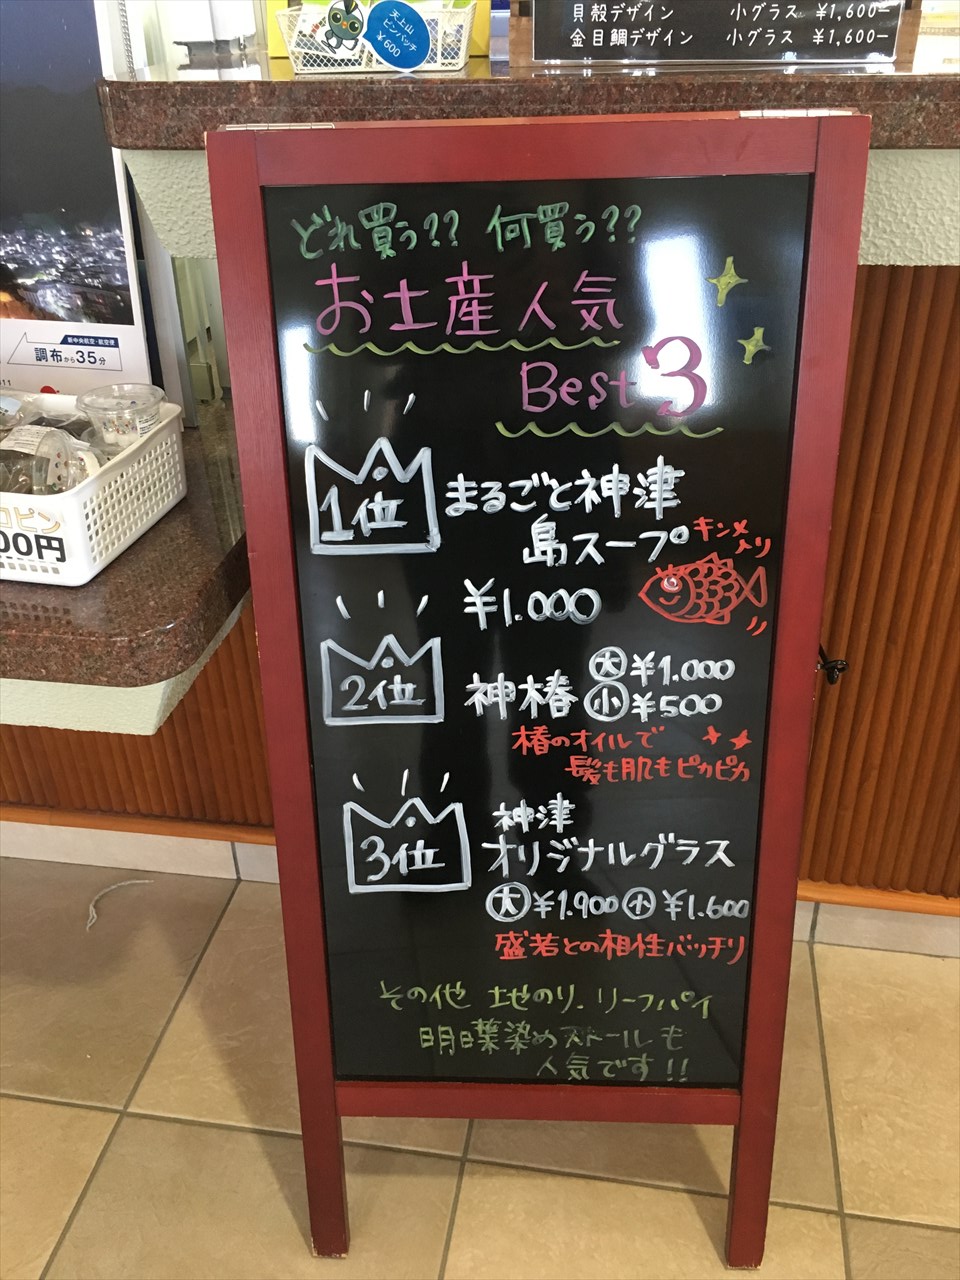 貝殻デザイン 小グラス ¥1,600-
金目鯛デザイン 小グラス ¥1,600-
天上山
ピンバッチ
¥600
どれ買う?? 何買う??
お土産人気
Best 3
1位 まるごと神津
島スープ
キンメ
入り
¥1.000
2位 神椿 大 ¥1.000
小 ¥500
椿のオイルで
髪も肌もピカピカ
3位 神津
オリジナルグラス
大 ¥1.900 小 ¥1.600
盛若との相性バッチリ
その他 地のり. リーフパイ
明日葉染めストールも
人気です!!
新中央航空・航空便
調布から35分
00円